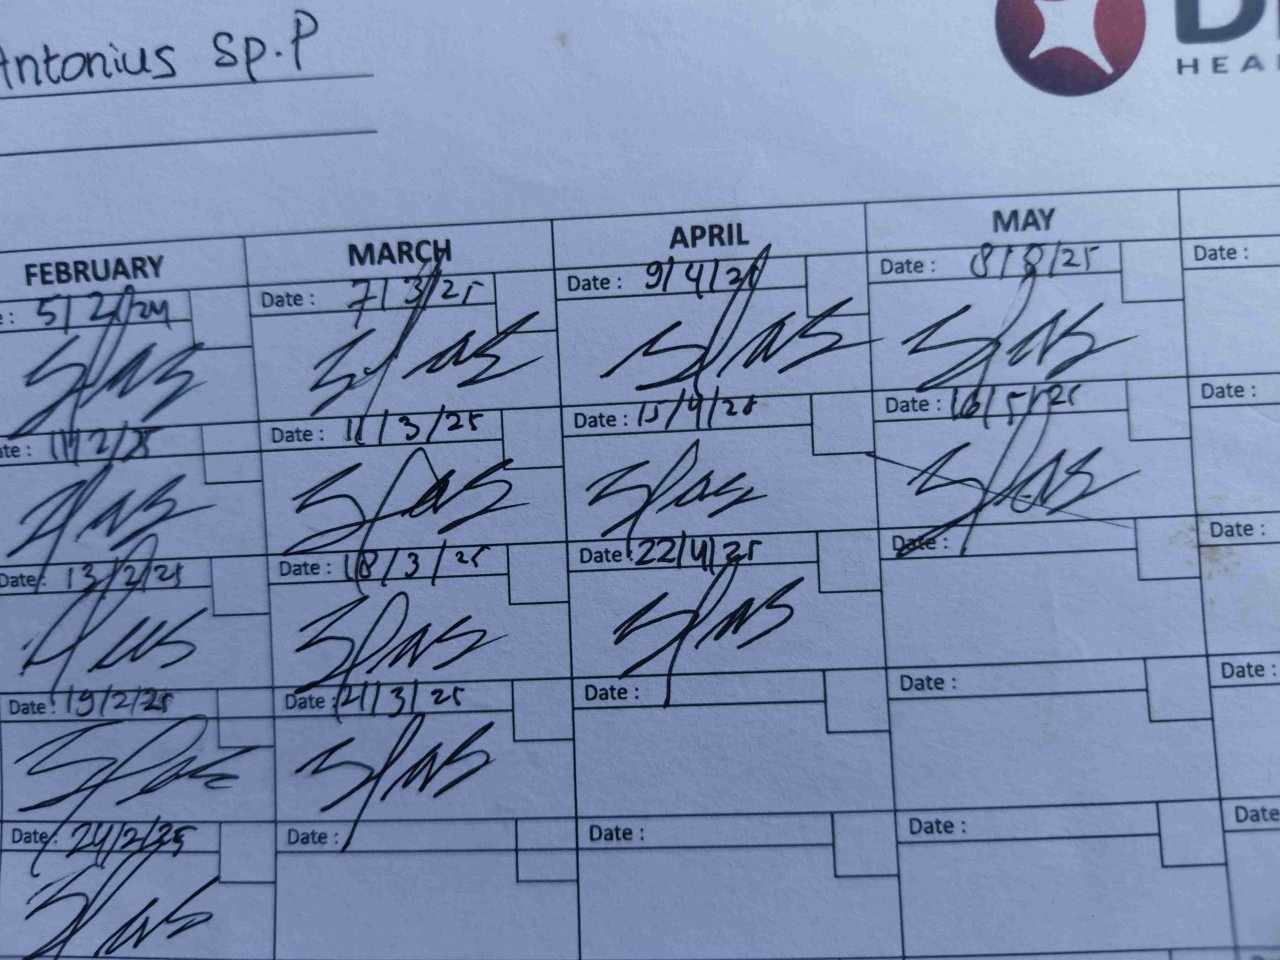 Antonius Sp.P
HEA
FEBRUARY MARCH APRIL MAY
5/2/24 Date : 7/3/25 Date : 9/4/25 Date : 8/8/25 Date :
11/2/25 Date : 11/3/25 Date : 15/4/25 Date : 16/5/25 Date :
Date : 13/2/25 Date : 18/3/25 Date : 22/4/25 Date : Date :
Date : 19/2/25 Date : 21/3/25 Date : Date : Date :
Date : 24/2/25 Date : Date : Date : Date